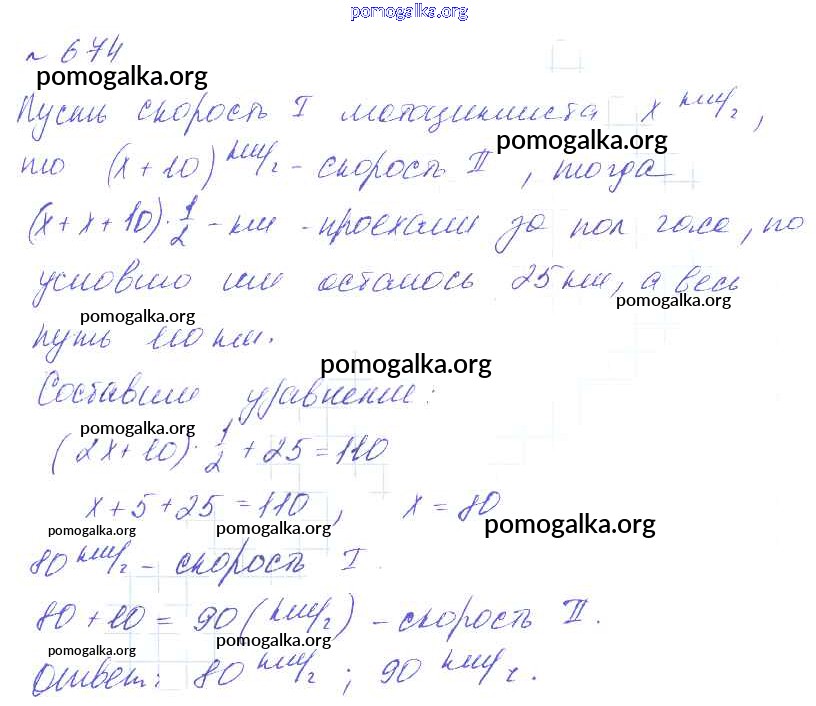 pomogalka.org
№ 674
pomogalka.org
Пусть скорость I мотоциклиста x км/ч,
pomogalka.org
то (x + 10) км/ч - скорость II, тогда
(x + x + 10) · 1/2 - км - проехали за пол часа, по
условию им осталось 25 км, а весь
pomogalka.org
pomogalka.org
путь 110 км.
pomogalka.org
Составим уравнение:
pomogalka.org
(2x + 10) · 1/2 + 25 = 110
x + 5 + 25 = 110, x = 80
pomogalka.org pomogalka.org pomogalka.org
80 км/ч - скорость I.
80 + 10 = 90 (км/ч) - скорость II.
pomogalka.org pomogalka.org
Ответ: 80 км/ч; 90 км/ч.